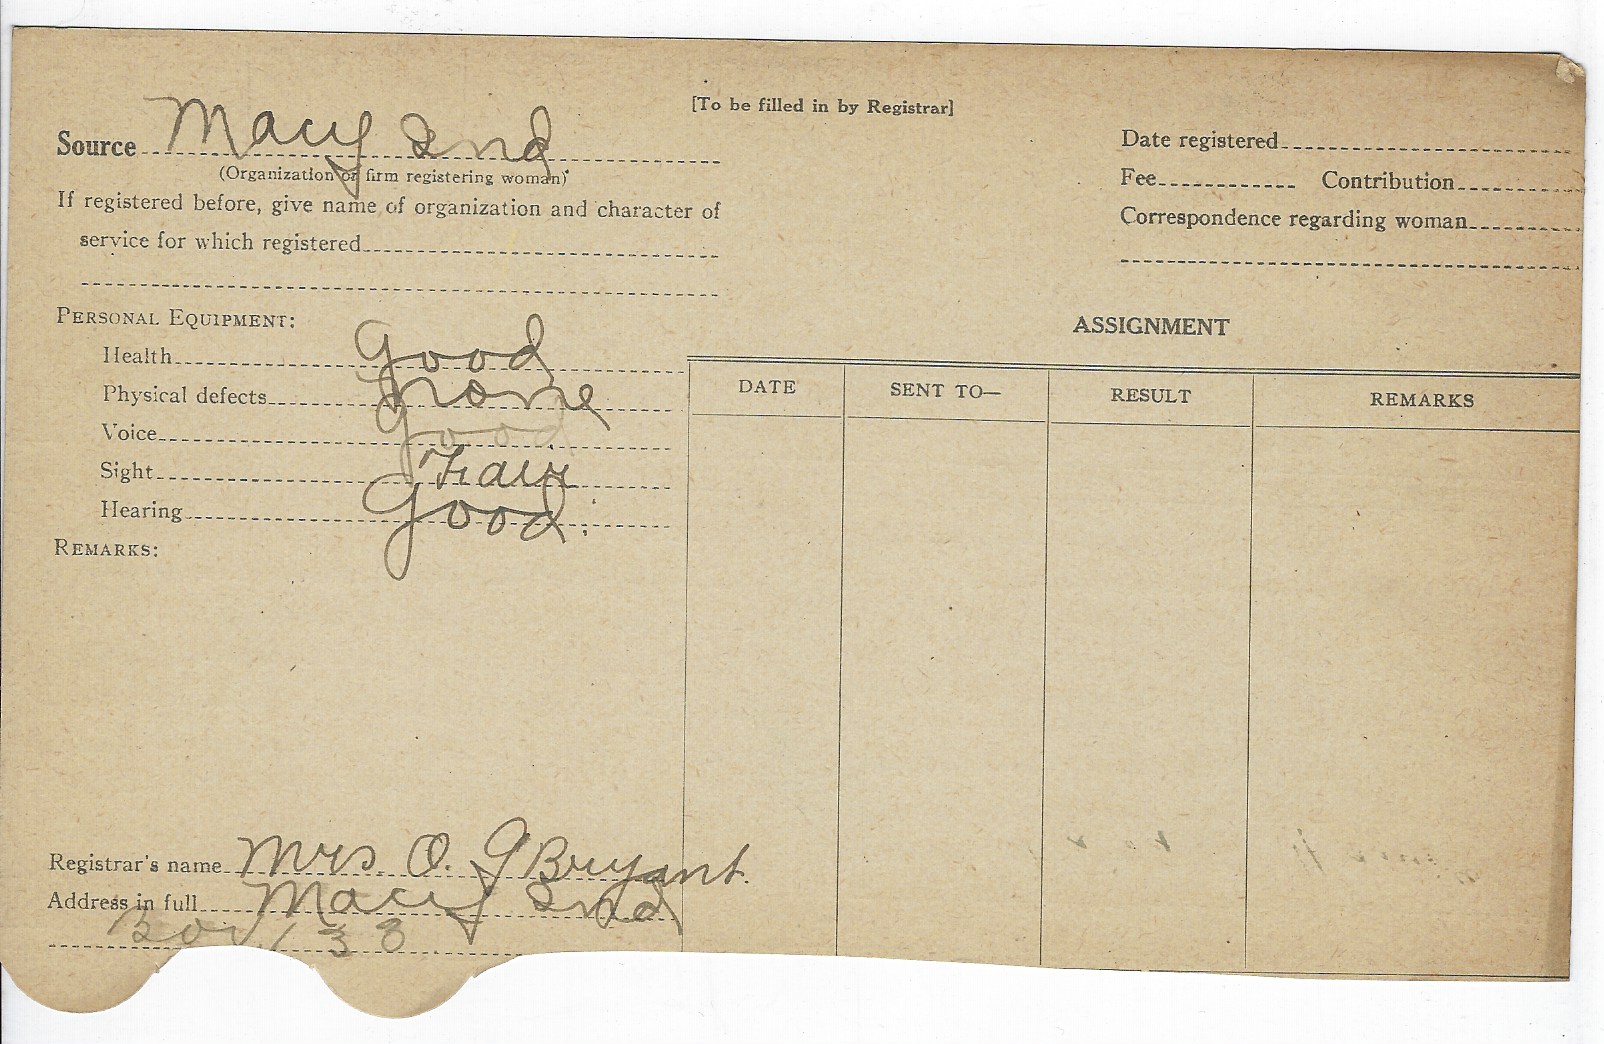 [To be filled in by Registrar]
Source Macy Ind
(Organization or firm registering woman)
If registered before, give name of organization and character of
service for which registered
Date registered
Fee Contribution
Correspondence regarding woman
PERSONAL EQUIPMENT:
Health Good
Physical defects none
Voice Good
Sight Fair
Hearing Good.
REMARKS:
ASSIGNMENT
DATE SENT TO— RESULT REMARKS
Registrar's name Mrs. O. G Bryant.
Address in full Macy Ind
Box 133